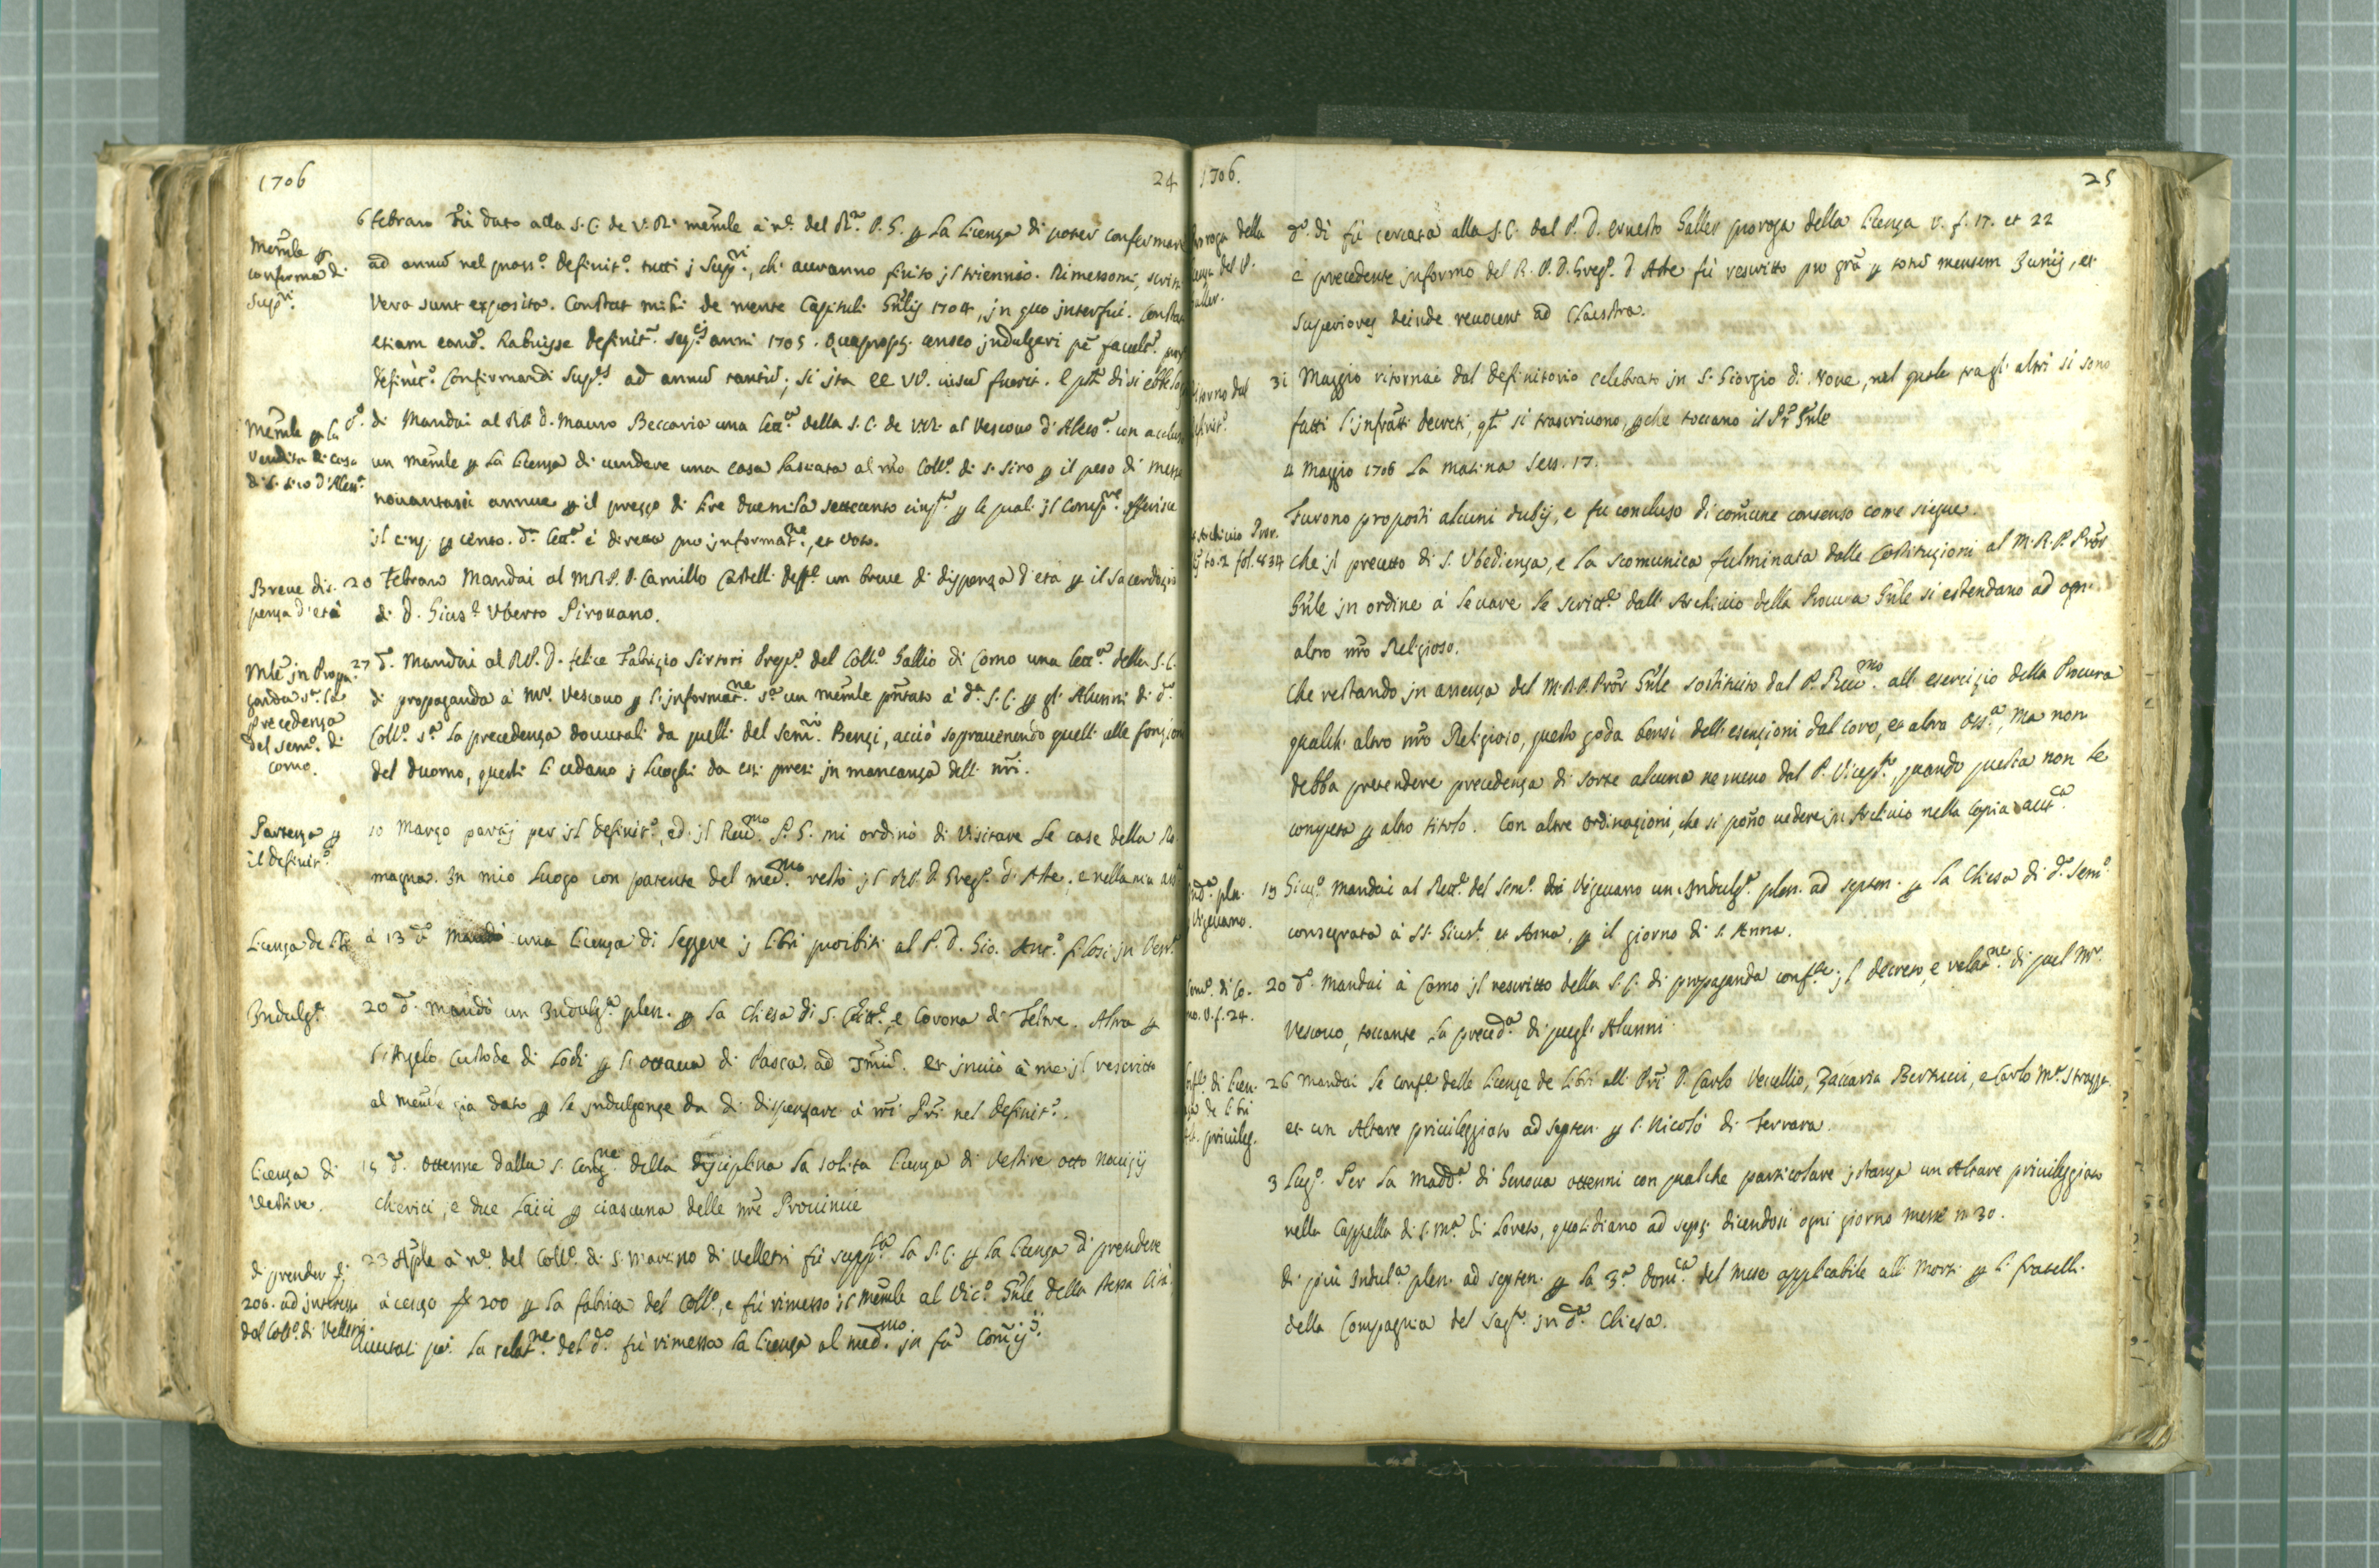 1706
24
6 febraro Fù dato alla S. C. de V. R. memle à ne. del Rmo. P. G. p la licenza di poter confermare
Memle p
conferma di
Supri.
ad annũ nel pross.o definit.o tutti j Supri., ch' averanno finito jl triennio. Rimessomi, scrissi
Vera sunt exposita. Constat mihi de mente Capituli Gnlis 1704, jn quo jnterfui. Constat
etiam eand. habuisse definit. seq. anni 1705. Quapropt. censeo jndulgeri pē facult.
definit.o Confirmandi Sup.es ad annũ tantũ; si ita EE VV. visũ fuerit. E
Memle p la
Vendita di casa
di S. Siro d'Aless.a
d.o di Mandai al RP D. Mauro Beccaria una lett.a della S. C. de VVRR. al Vescovo d'Aless.a con acclus
un memle p la licenza di vendere una casa lasciata al nro Coll.o di S. Siro p il peso di messe
novantasei annue p il prezzo di lire duemila settecento cinq.ta p le quali jl Comp.re offerisce
jl cinq. p cento. d.a lett.a è diretta pro jnformat.ne, et voto.
Breve dis-
penza d'età
20 febraro Mandai al MRP. D. Camillo Castelli un breve di dispenza d'età p il sacerdozio
di D. Gius.e Uberto Pirovano.
Mle in Propa-
ganda s.a la
Precedenza
del Sem.o di
Como.
27 d.o Mandai al RP. D. felice Fabrizio Sirtori Prep.o del Coll.o Gallio di Como una lett.a della S. C.
di propaganda à Mr. Vescovo p l'jnformat.ne s.a un memle pntato à d.a S. C. p gli Alunni di d.o
Coll.o s.a la precedenza douutali da quelli del Sem.rio Benzi, acciò sopravenendo quelli alle fonzioni
del duomo, questi li cedano j luoghi da essi presi jn mancanza delli nri.
Partenza p
il definit.o
10 Marzo partij per jl definit.o, ed jl Reu.mo P. G. mi ordinò di Visitare le case della Ro-
magna. In mio luogo con patente del med.mo restò jl RP. D. Greg.o d'Aste, e nella mia
Licenza de libri
à 13 d.o Mandò una licenza di leggere j libri proibiti al P. D. Gio. Ant.o jn Ven.a
Indulg.e
20 d.o Mandò un Indulg.a plen. p la Chiesa di S. e Corona di Feltre. Altra p
l'Angelo Custode di Lodi p l'ottava di Pasca. ad et jnviò à me jl rescritto
al memle già dato p le jndulgenze da di dispensare à nri Pri nel definit.o.
Licenza di
Vestire.
15 d.o Ottenne dalla S. Cong.ne della disciplina la solita licenza di Vestire otto novizij
chierici, e due laici p ciascuna delle nre Provincie
di prender
200. ad jnteresse
dal Coll.o di Velletri.
23 Aple à ne. del Coll.o di S. Martino di Velletri fù supp.ta la S. C. p la licenza di prendere
à censo 200 p la fabrica del Coll.o, e fù rimesso jl memle al Vic.o Gnle della stessa Città
la relat.ne del d.o fù rimessa la licenza al med.mo jn
1706.
25
Proroga della
licenza del P.
Galler.
d.o dì fù cercata alla S. C. dal P. D. Ernesto Galler proroga della licenza V. f. 17. et 22
e precedente jnformo del R. P. D. Greg.o d'Aste fù rescritto pro grã p totũ mensem Junij, et
Superiores deinde revocent ad Claustra.
Ritorno del
definit.o
31 Maggio ritornai dal definitorio celebrato jn S. Giorgio di Nove, nel quale tra gl'altri si sono
fatti l'jnfratti decreti, qti si trascrivono, pche toccano il Pr Gnle
4 Maggio 1706 la matina Sess. 17.
Furono proposti alcuni dubij, e fu concluso di comune consenso come siegue.
Archivio Pror.
to. 2 fol. 434
Che jl precetto di S. Ubedienza, e la scomunica fulminata dalle Costituzioni al M. R. P. Pror
Gnle jn ordine à levare le scritt.e dall'Archivio della Procura Gnle si estendano ad ogni
altro nro Religioso.
Che restando jn assenza del M. R. P. Pror Gnle sostituito dal P. Reu.mo all'esercizio della Procura
qualche altro nro Religioso, questo goda bensì dell'esenzioni dal coro, et altra Oss.a, ma non
debba pretendere precedenza di sorte alcuna nemeno dal P. Vicep.to, quando questa non le
competa p altro titolo. Con altre ordinazioni, che si pono vedere jn Archivio nella Copia aut.ca
Ind.a plen.
Vigevano.
19 Giug.o Mandai al Rett.e del Sem.o di Vigevano un Indulg.a plen. ad septen. p la Chiesa di d.o Sem.o
consegrata à SS. Gius.e et Anna, p il giorno di S. Anna.
Sem.o di Co-
mo. V. f. 24.
20 d.o Mandai à Como jl rescritto della S. C. di propaganda conf.te jl decreto, e relat.ne di quel Mr.
Vescovo, toccante la preced.a di quegli Alunni.
Conf.e di licen-
za de libri
Alt. privileg.
26 Mandai le conf.e delle licenze de libri alli Pri D. Carlo Vercellio, Zaccaria Bertucci, e Carlo M.a
et un Altare privileggiato ad septen. p S. Nicolò di Ferrara.
3 Lug.o Per la Madd.a di Genova ottenni con qualche particolare jstanza un Altare privileggiato
nella Cappella di S. M.a di Loreto, quotidiano ad sept. dicendosi ogni giorno messe n 30.
di più Indul.a plen. ad septen. p la 3.a dom.ca del Mese applicabile alli Morti p li fratelli
della Compagnia del Sag.to jn d.a Chiesa.